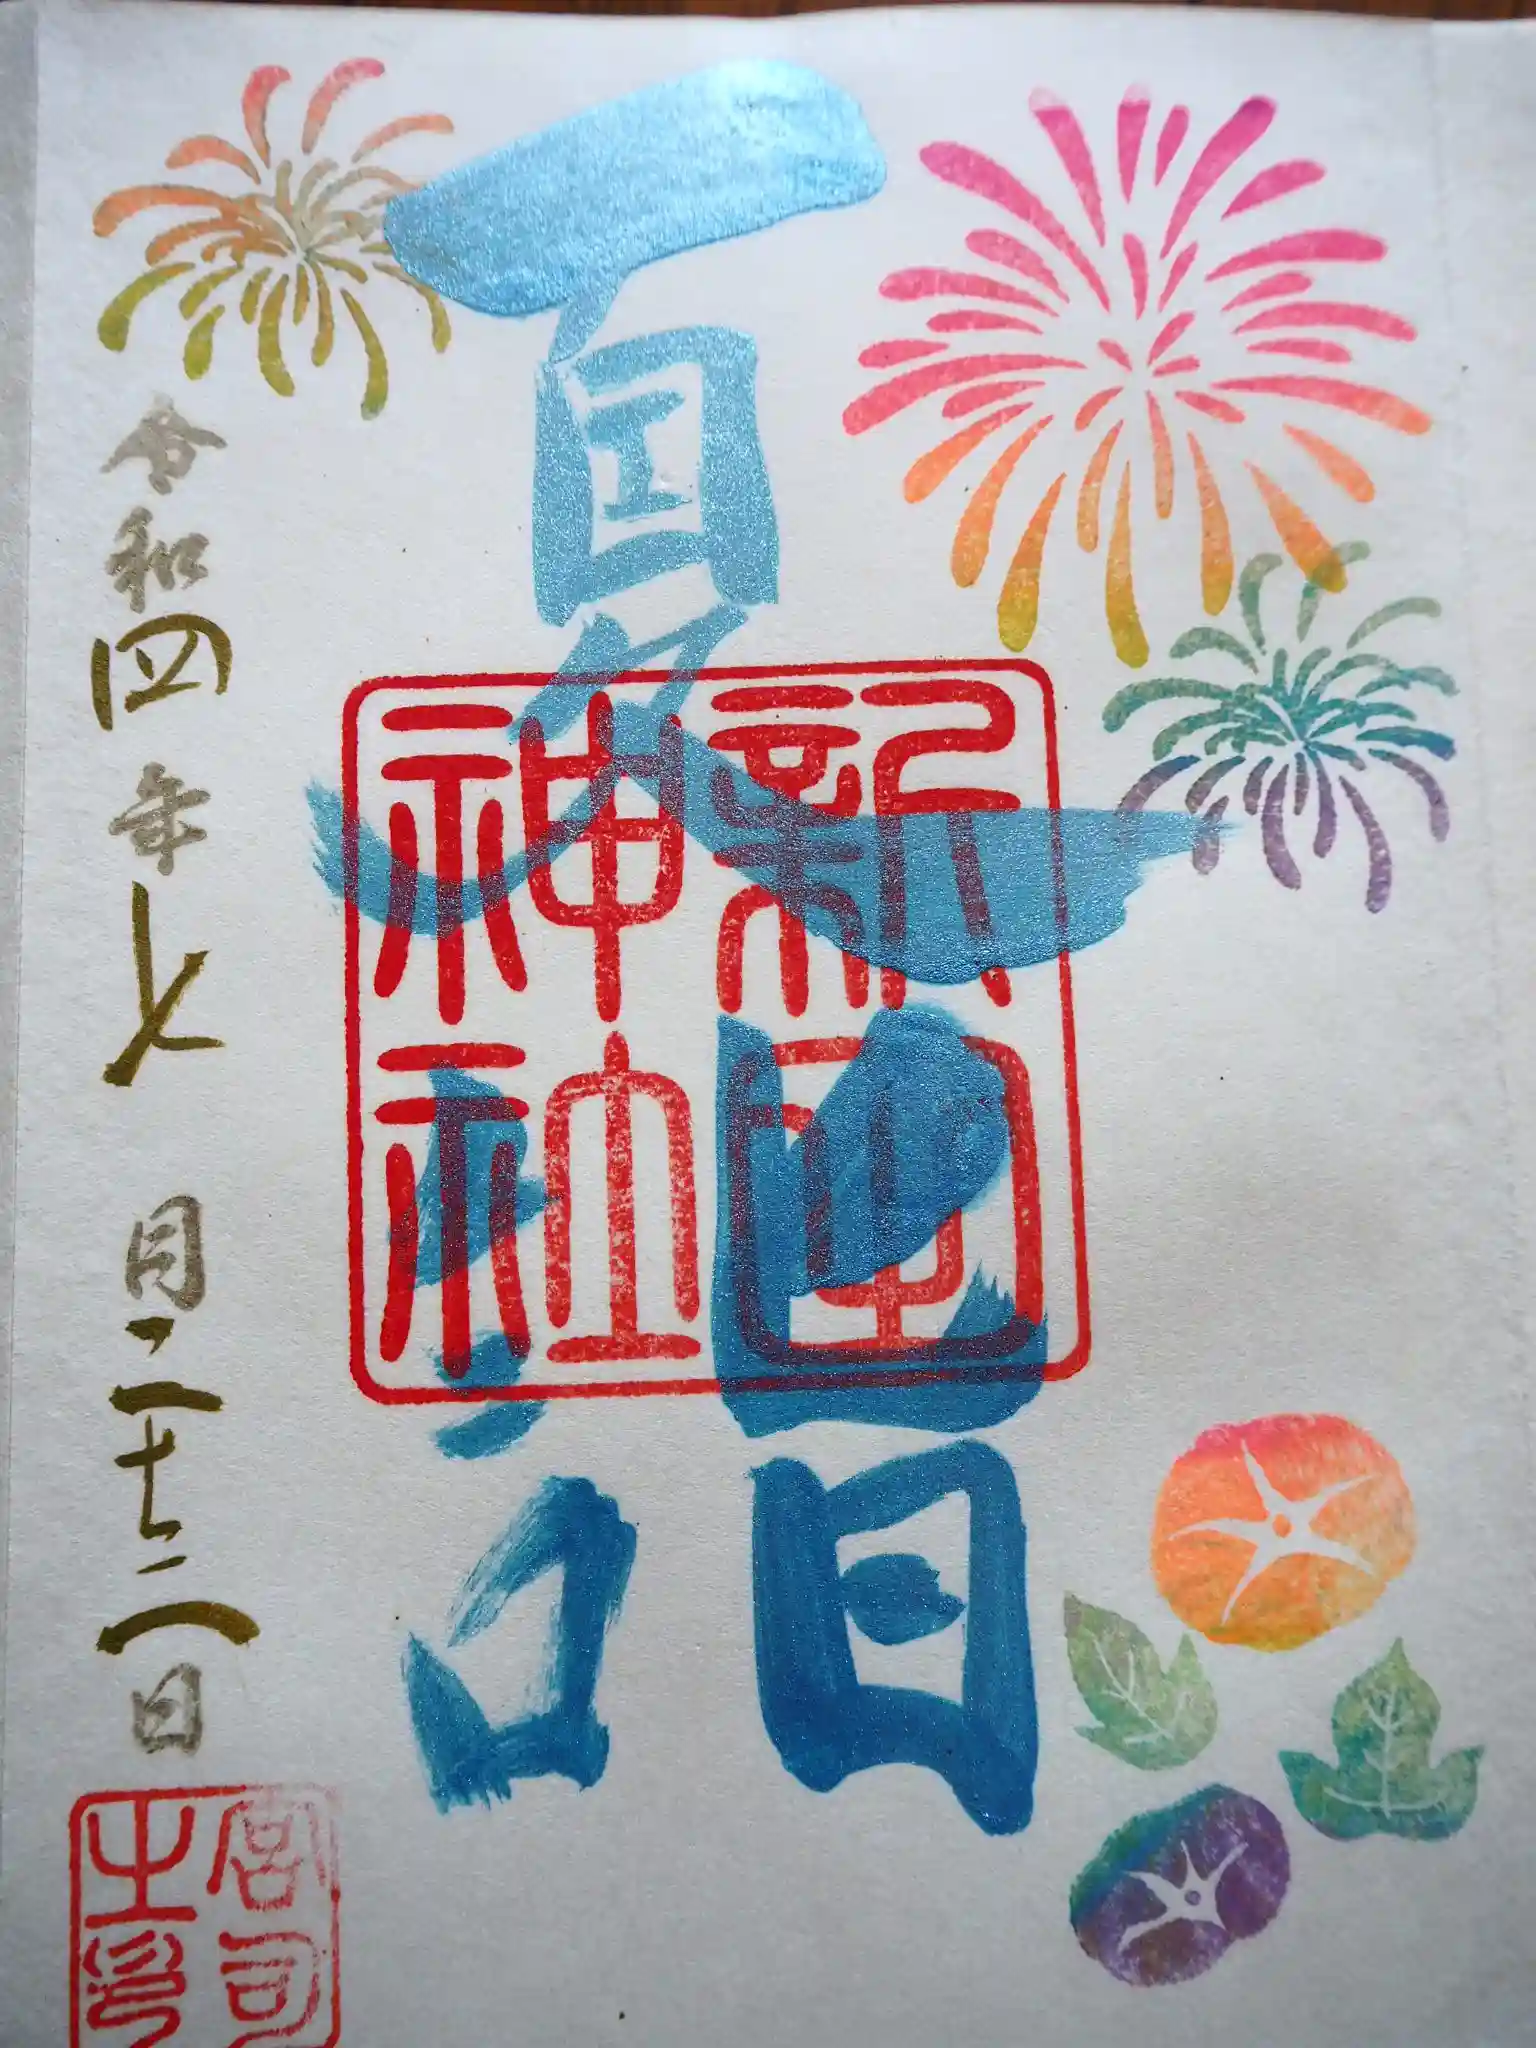 夏詣
神社
令和四年七月二十二日
宮司
之印